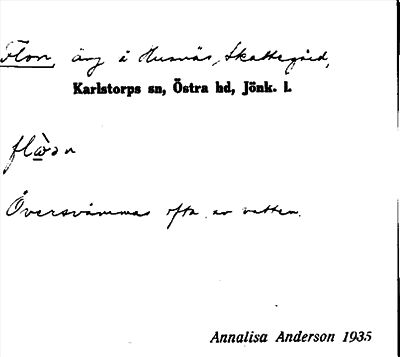 Flon, äng å Husnäs, Skattegård,
Karlstorps sn, Östra hd, Jönk. l.
flὰən
Översvämmas ofta av vatten.
Annalisa Anderson 1935